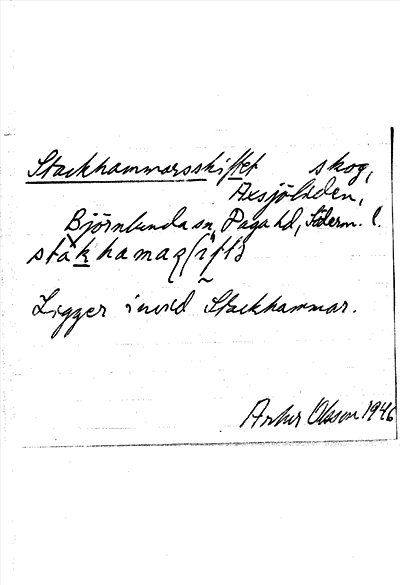 Stackhammarsskiftet skog,
Axsjöladen,
Björnlunda sn, Daga hd, Söderm. l.
Ligger invid Stackhammar.
Artur Olsson 1946